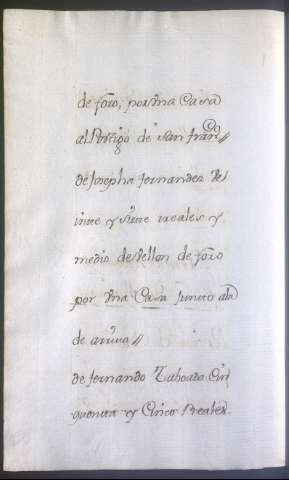 de foro, por Vna Casa
al Postigo de San fran.co //
de Josepha fernandez Ve
inte y siete reales y
medio de Vellon de foro
por Vna Casa Junto ala
de arriva //
de fernando Taboada Cin
quenta y Cinco Reales.